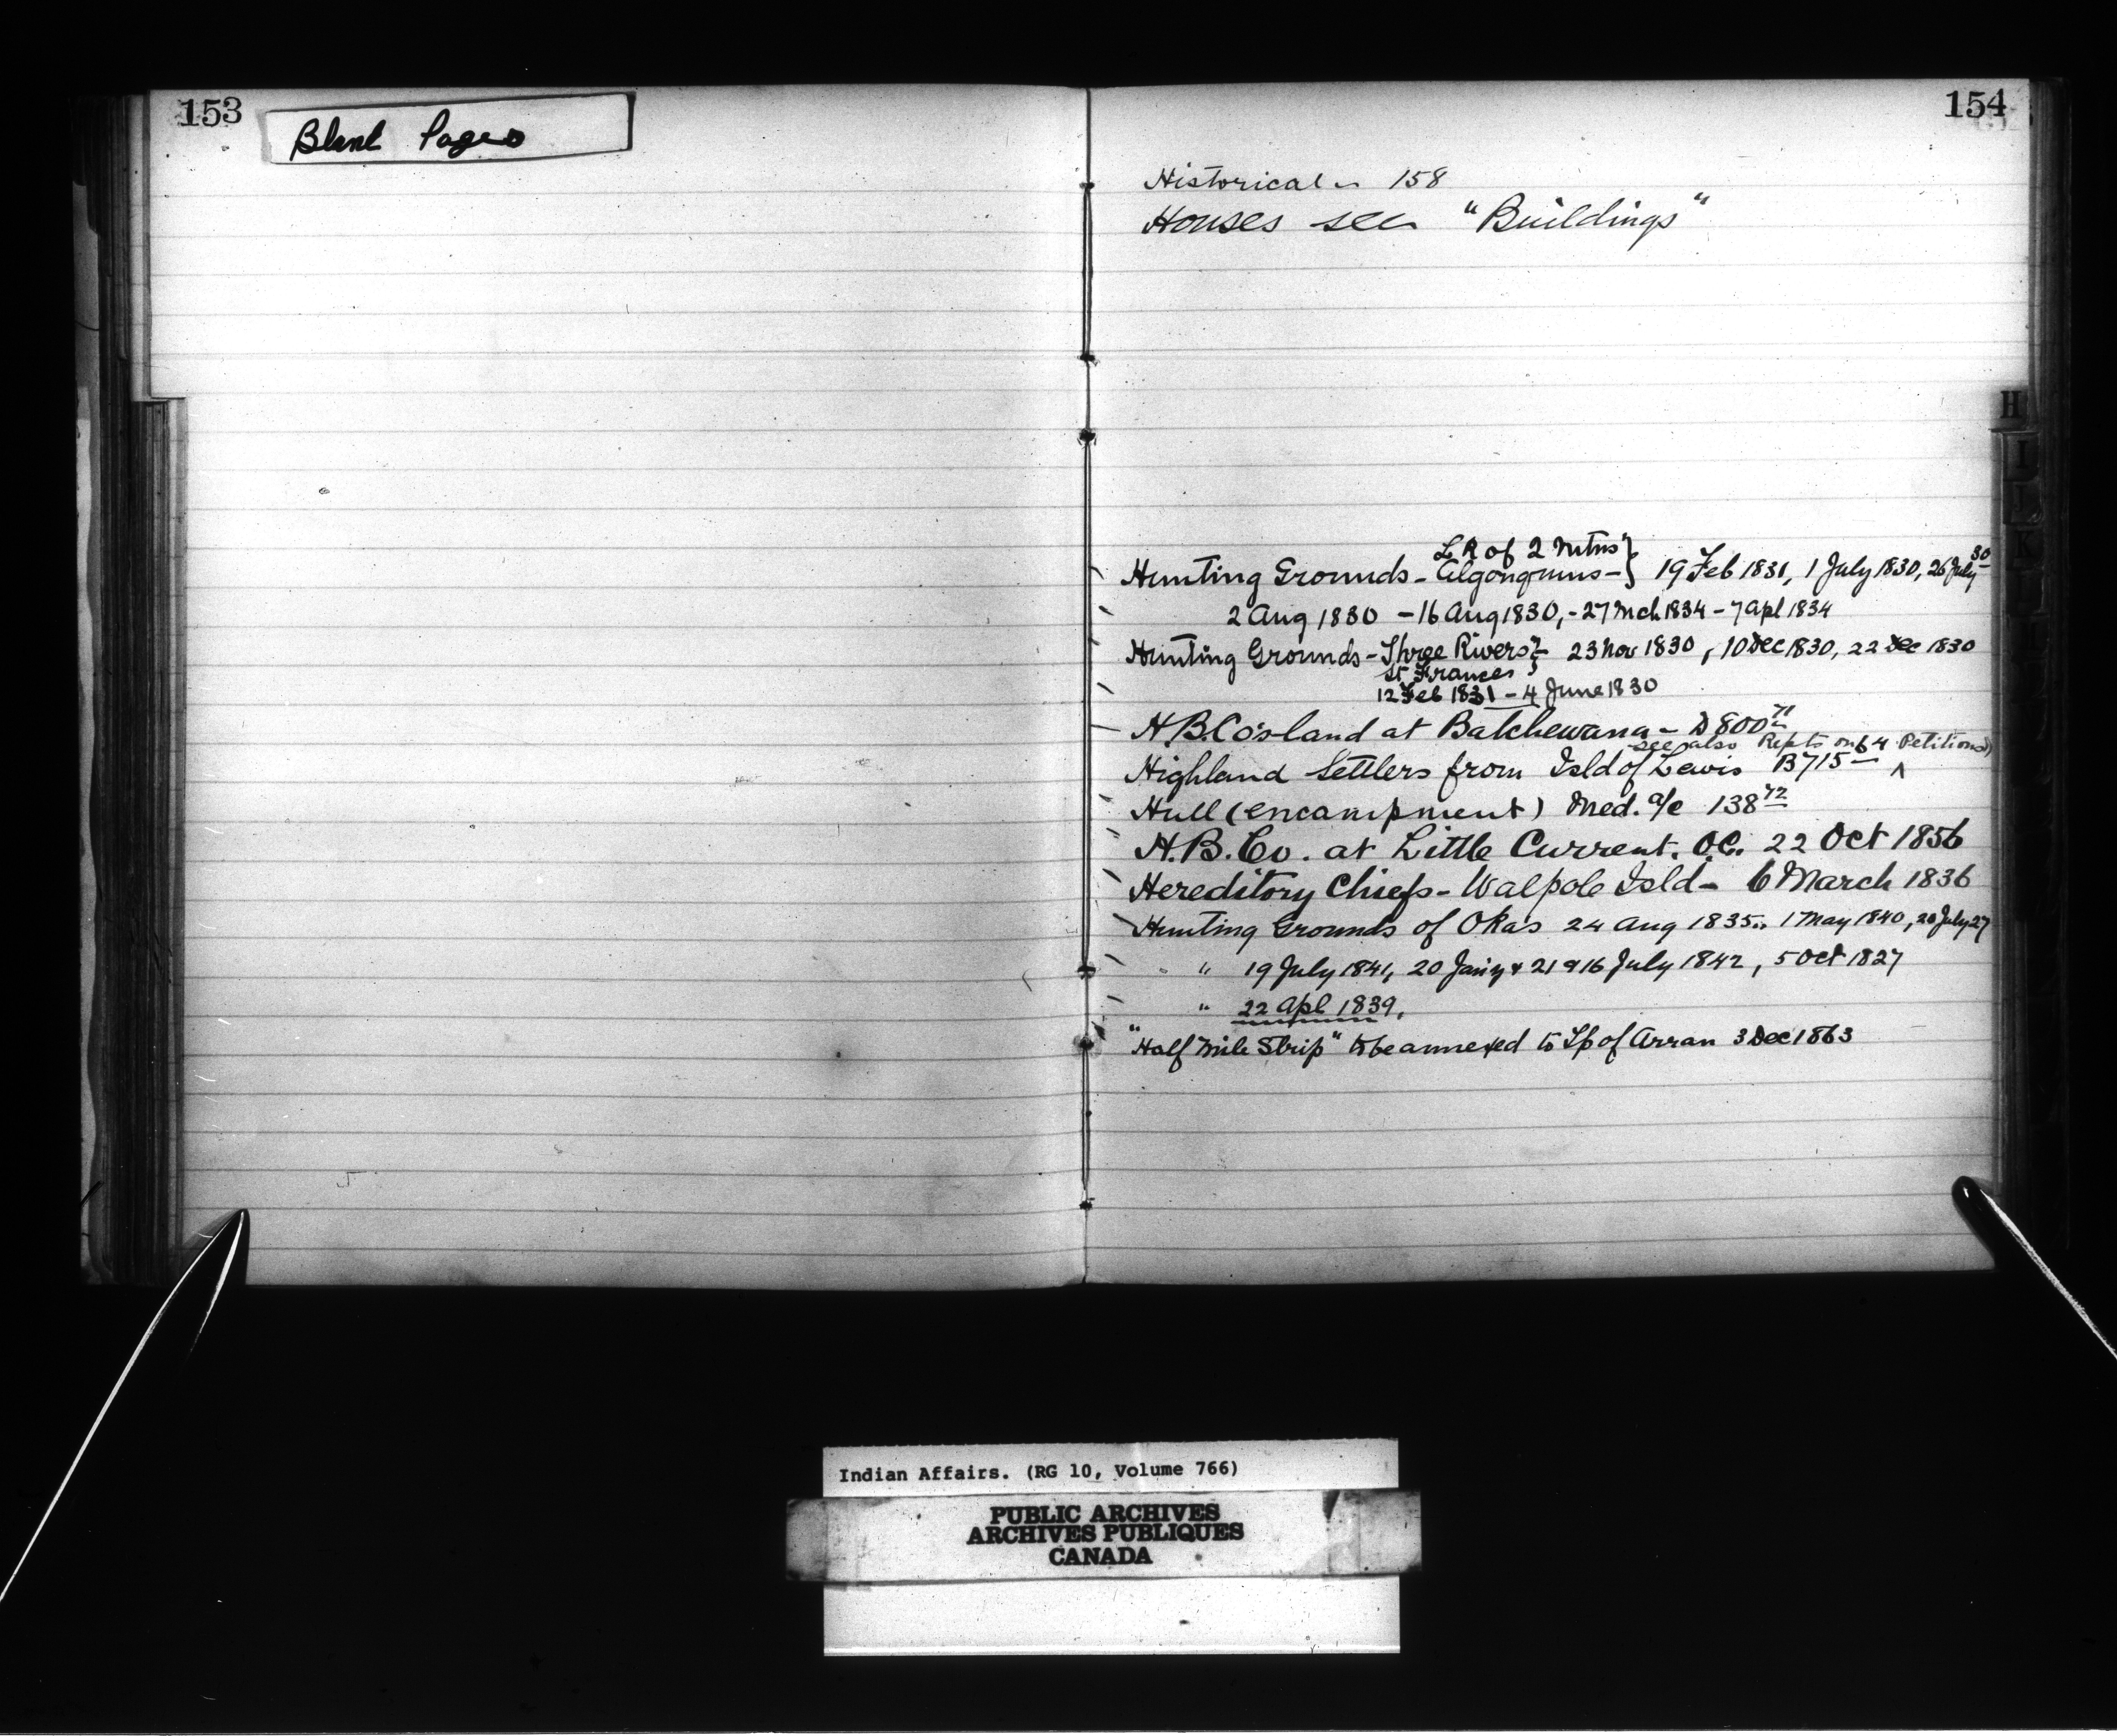 153
Blank Pages
154
Historical - 158
Houses see "Buildings"
L R of 2 Mtns }
Hunting Grounds - Algonquins - } 19 Feb 1831, 1 July 1830, 26 July 30
2 Aug 1830 - 16 Aug 1830, - 27 Mch 1834 - 7 Apl 1834
Hunting Grounds - Three Rivers } - 23 Nov 1830, 10 Dec 1830, 22 Dec 1830
St Francis }
12 Feb 1831 - 4 June 1830
H.B.Co's land at Batchewana - D 800 71
see also Repts on 64 Petitions)
Highland Settlers from Isld of Lewis B 715 - ^
Hull (encampment) Med. a/c 138 72
H.B. Co. at Little Current. O.C. 22 Oct 1856
Hereditory Chiefs - Walpole Isld - 6 March 1836
Hunting Grounds of Okas 24 Aug 1835.. 1 May 1840, 20 July 27
" 19 July 1841, 20 Jan'y & 21 & 16 July 1842, 5 Oct 1827
" 22 Apl 1839,
"Half Mile Strip" to be annexed to Tp of Arran 3 Dec 1863
H
I
J
K
Indian Affairs. (RG 10, Volume 766)
PUBLIC ARCHIVES
ARCHIVES PUBLIQUES
CANADA